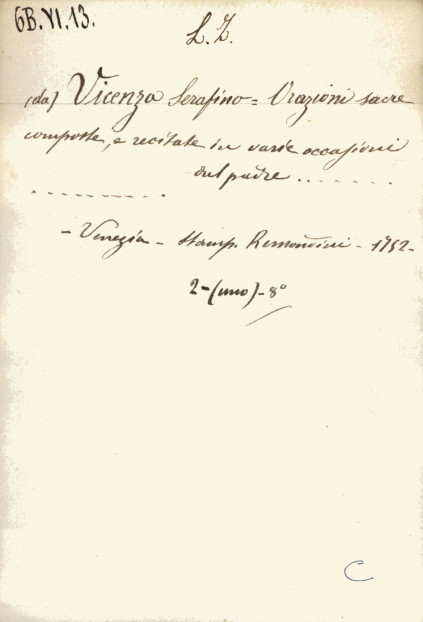 6B.VI.13.
L. Z.
(da) Vicenza Serafino = Orazioni sacre
composte, e recitate in varie occasioni
del padre . . . . . . .
. . . . . . . . . . .
- Venezia - Stamp. Remondini - 1752 -
2 - (uno) - 8º
C